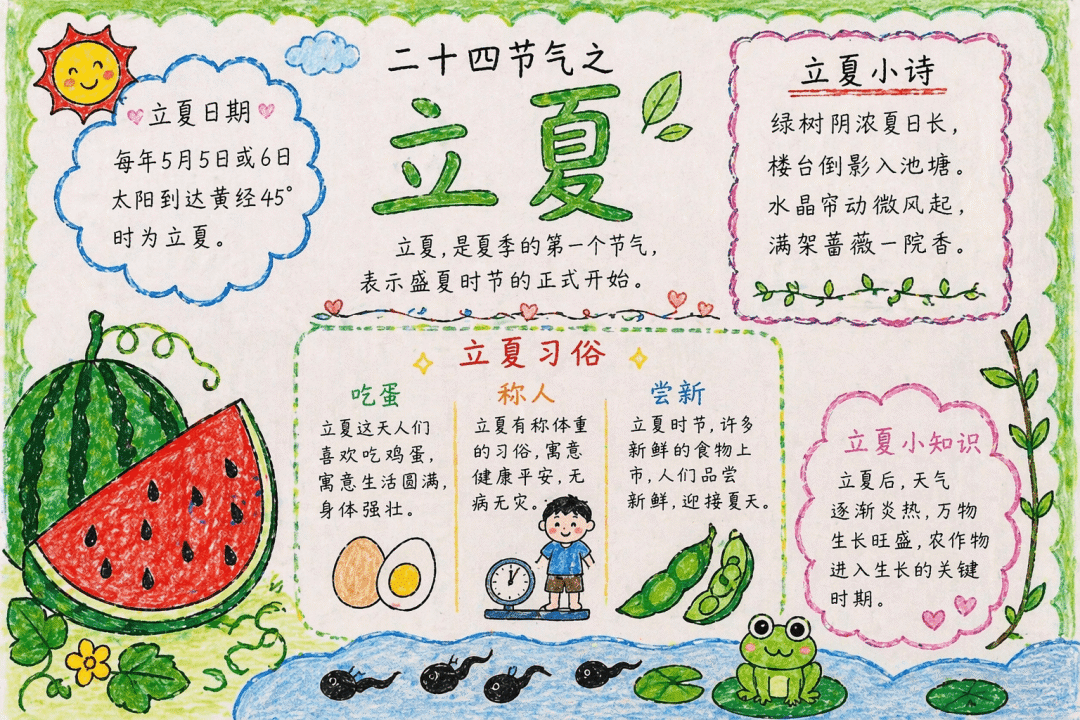 二十四节气之
立夏
立夏,是夏季的第一个节气,
表示盛夏时节的正式开始。
立夏日期
每年5月5日或6日
太阳到达黄经45°
时为立夏。
立夏小诗
绿树阴浓夏日长,
楼台倒影入池塘。
水晶帘动微风起,
满架蔷薇一院香。
立夏习俗
吃蛋
立夏这天人们
喜欢吃鸡蛋,
寓意生活圆满,
身体强壮。
称人
立夏有称体重
的习俗,寓意
健康平安,无
病无灾。
尝新
立夏时节,许多
新鲜的食物上
市,人们品尝
新鲜,迎接夏天。
立夏小知识
立夏后,天气
逐渐炎热,万物
生长旺盛,农作物
进入生长的关键
时期。